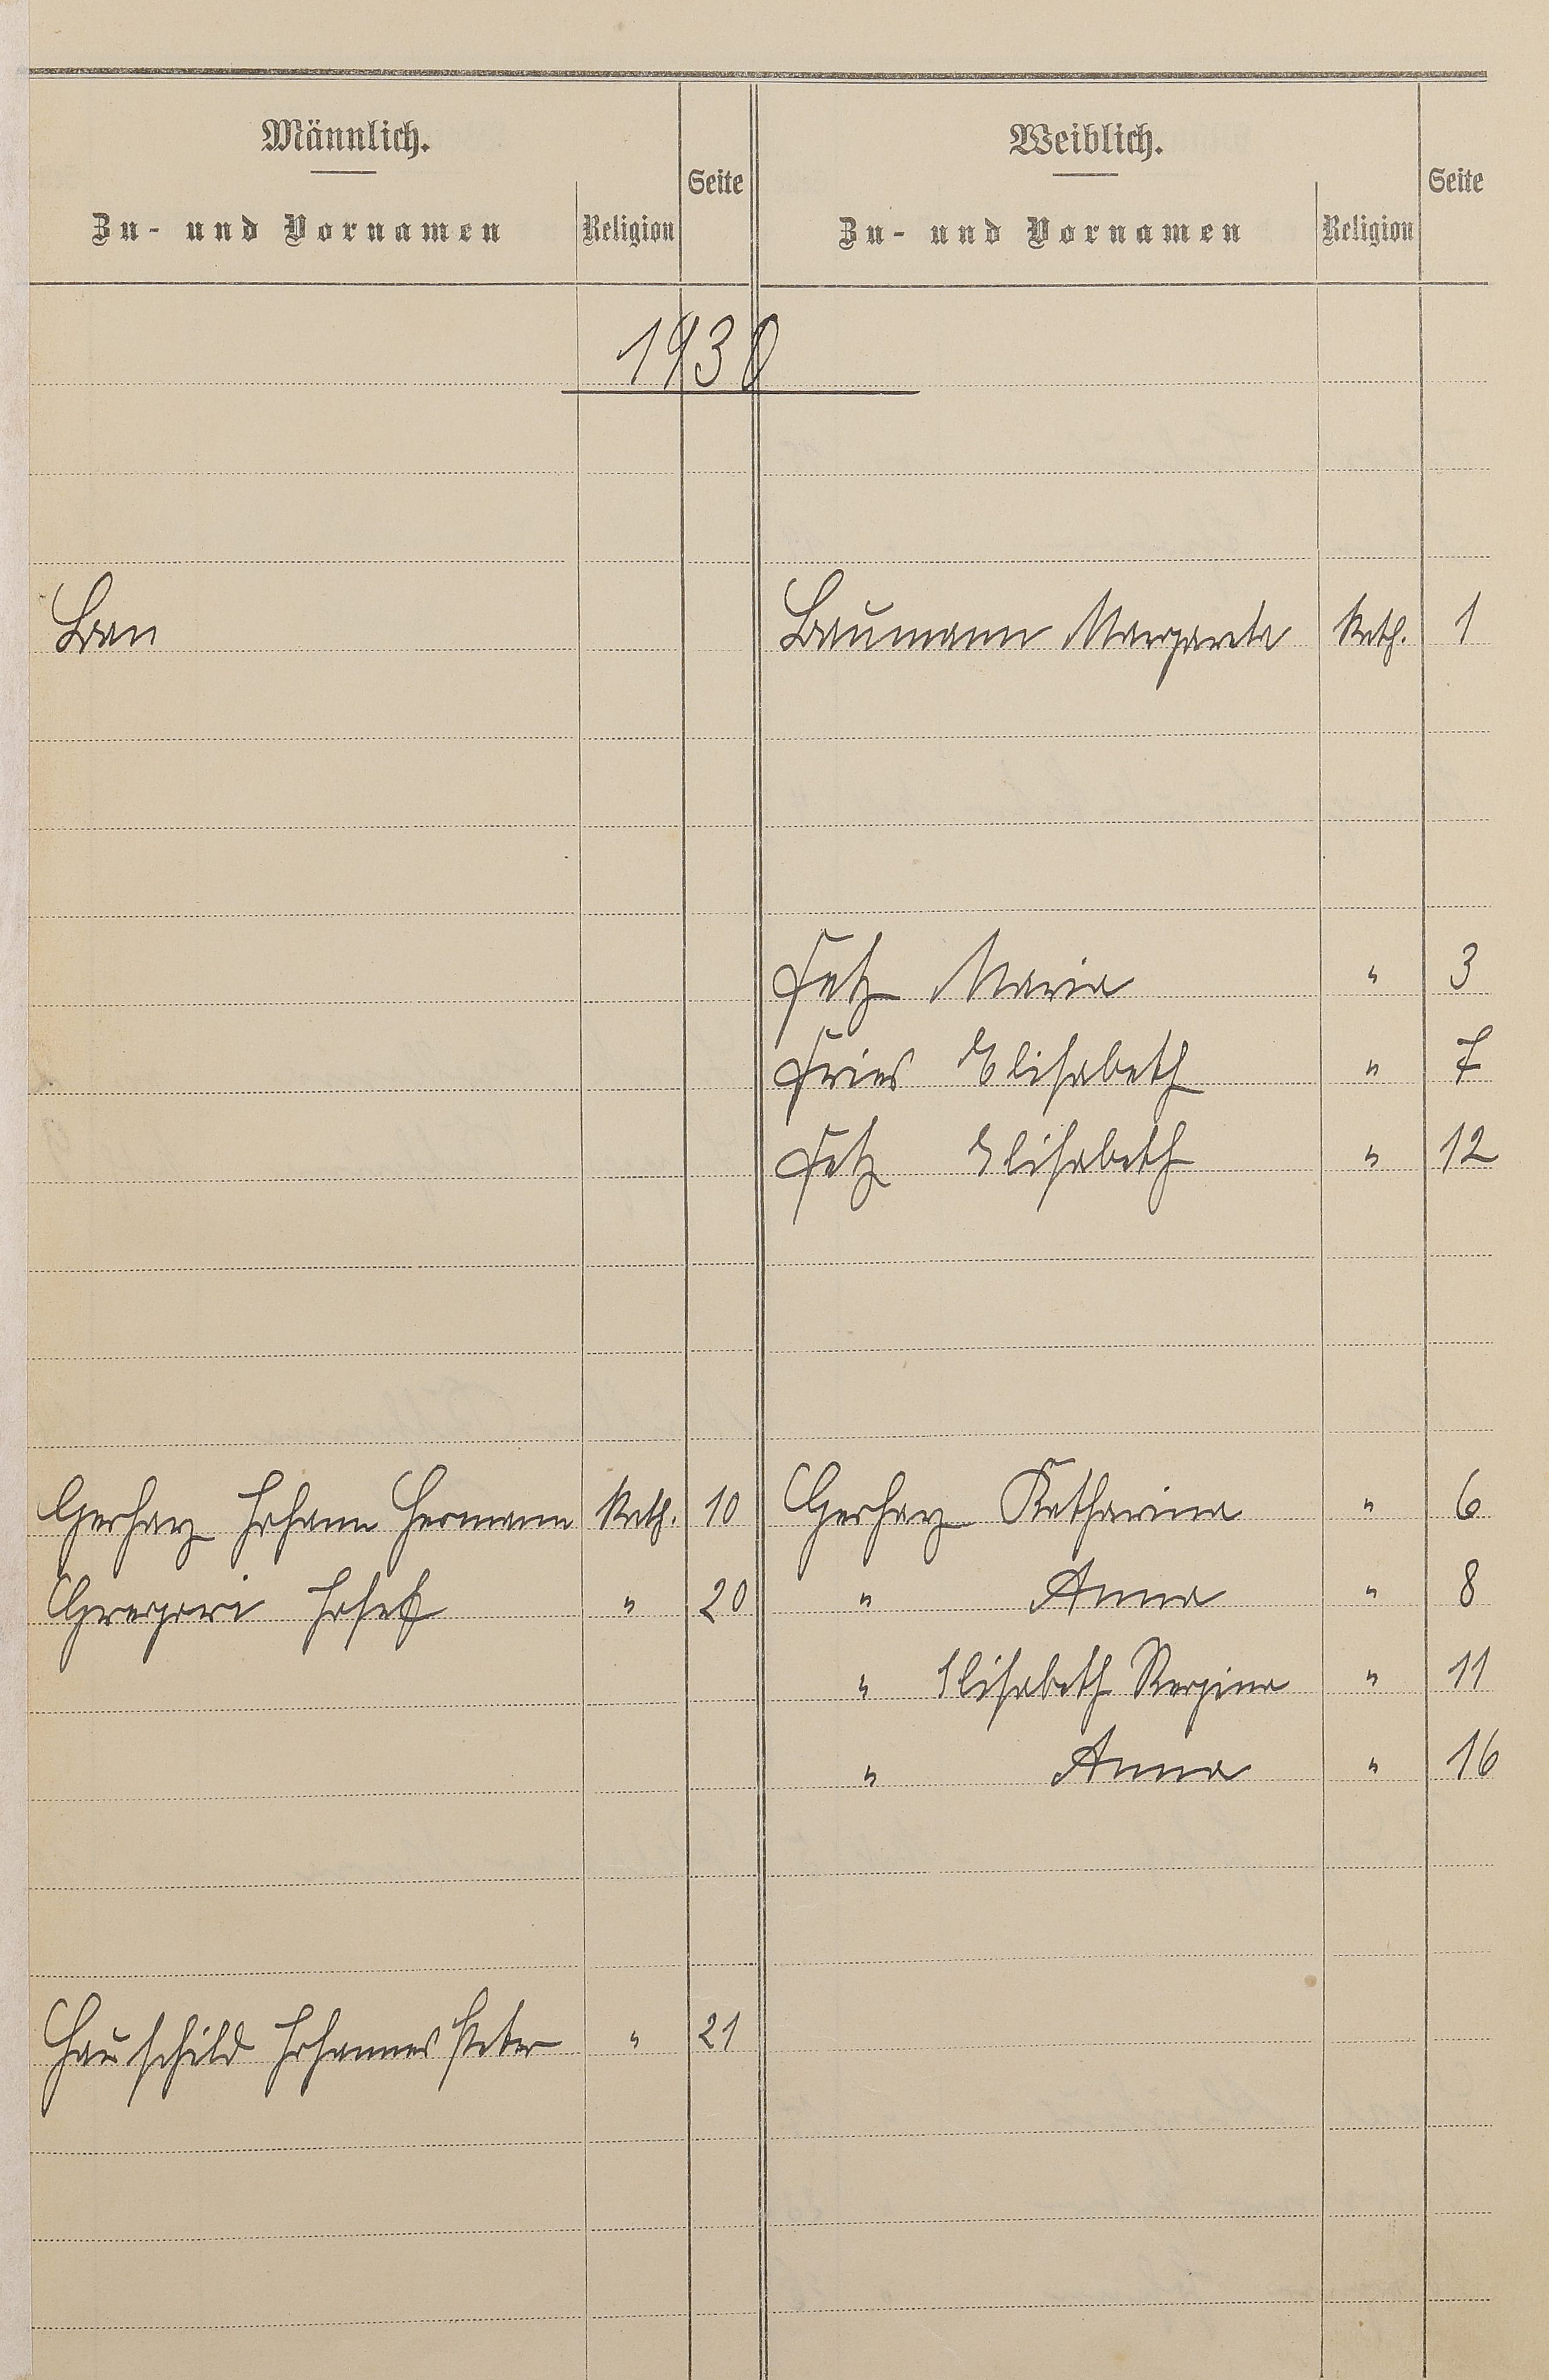 Männlich.
Zu- und Vornamen Religion Seite
Weiblich.
Zu- und Vornamen Religion Seite
1930
Bau Baumann Margareta Kath. 1
Fetz Maria " 3
Fries Elisabeth " 7
Fetz Elisabeth " 12
Gerharz Johann Hermann Kath. 10 Gerharz Katharina " 6
Gregori Josef " 20 " Anna " 8
" Elisabeth Regina " 11
" Anna " 16
Hauschild Johannes Peter " 21